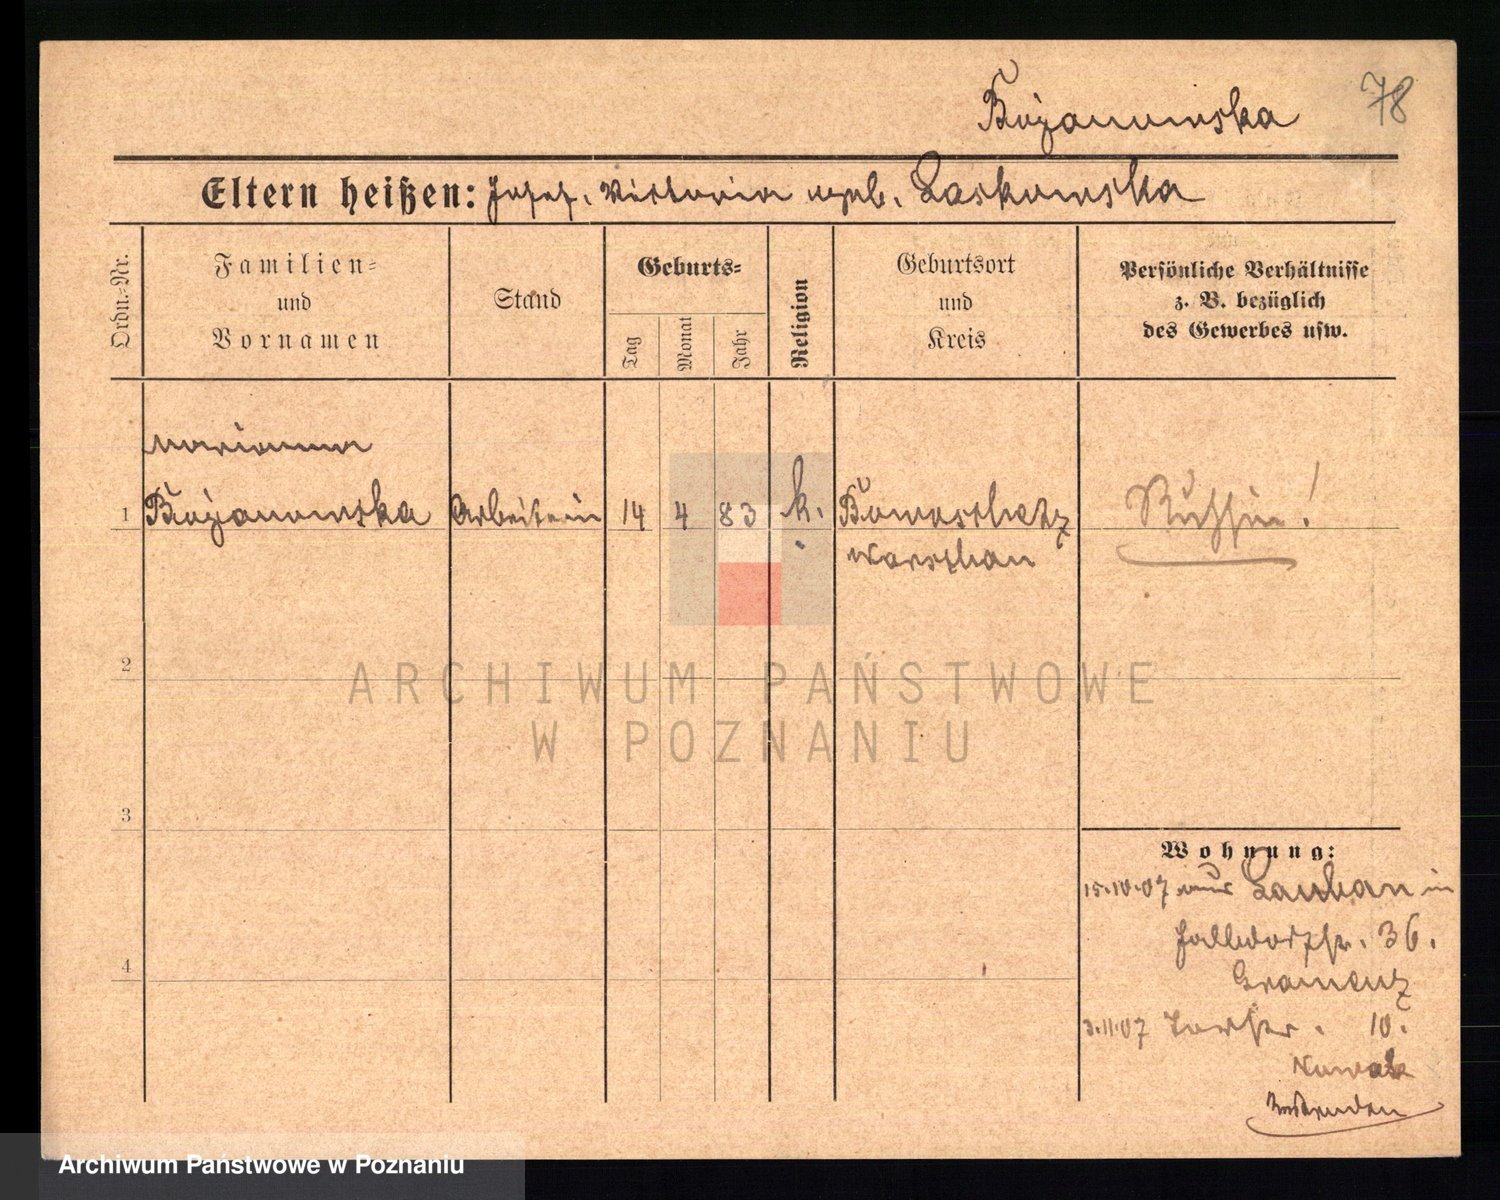 Bojanowska 78
Eltern heißen: Josef, Viktoria geb. Laskowska
Ordn.-Nr.
Familien-
und
Vornamen
Stand
Geburts-
Tag
Monat
Jahr
Religion
Geburtsort
und
Kreis
Persönliche Verhältnisse
z. B. bezüglich
des Gewerbes usw.
Marianna
1 Bojanowska Arbeiterin 14 4 83 k.
Warschau
Russin!
2
ARCHIWUM PAŃSTWOWE
W POZNANIU
3
4
Wohnung:
15.10.07 aus Lauban in
36.
3.11.07 10.
Nowak
Archiwum Państwowe w Poznaniu